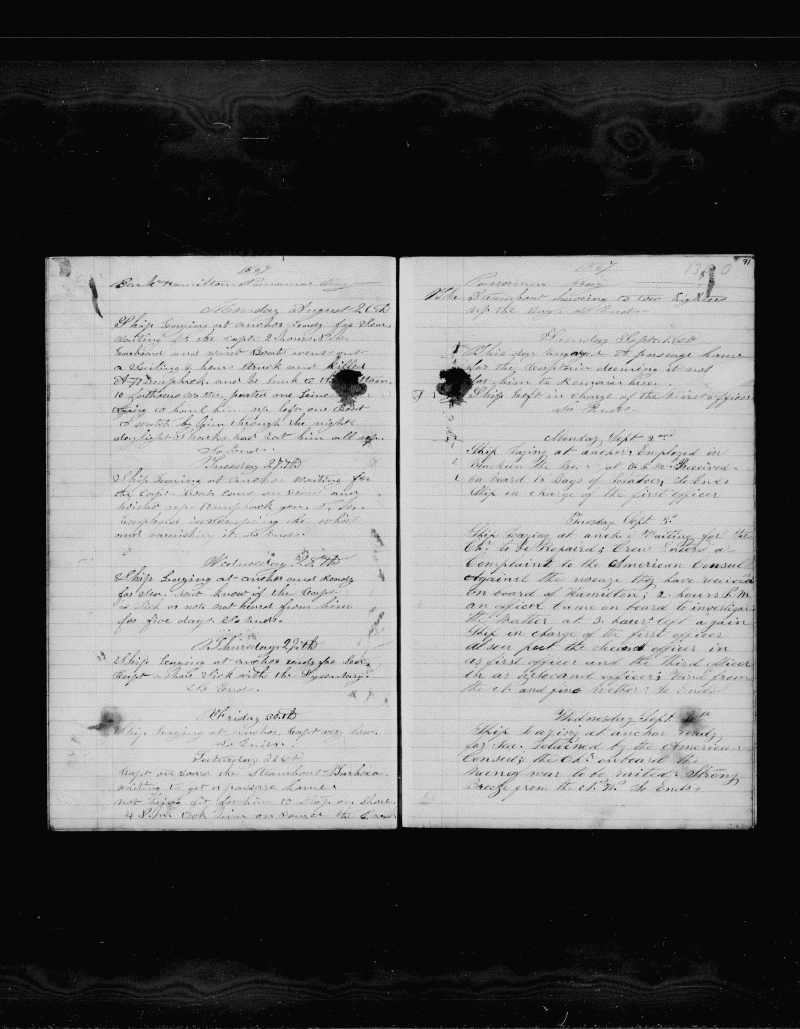 1867
Bark Hamilton Panama Bay
Monday August 26th
Ship Laying at anchor Ready for Sea
waiting for the Capt 2 hours P.M.
Larboard and waist Boats went out
a Sailing 4 hours Struck and killed
A Humpback and he sunk to the
10 fathoms water, parted one Line
trying to haul him up left one Boat
to watch by him through the night
daylight Sharks had eat him all up.
So Ends.
Tuesday 27th
Ship Laying at anchor waiting for
the Capt Boats came on board and
Humpback gone
Employed in Scraping the Ship
and varnishing it. So Ends.
Wednesday 28th
Ship Laying at anchor and Ready
for Sea. dont know if the Capt
is Sick or not. not heard from him
for five days So Ends.
Thursday 29th
Ship Laying at anchor ready for Sea.
Capt ashore Sick with the Dysentary.
So Ends.
Friday 30th
Ship laying at anchor Capt very low.
So Ends.
Saturday 31st
Capt on board the Steamboat
waiting to get a passage home
not being fit for him to Stop on Shore
4 P.M. took him on board the
91
1867
Panama Bay
Steamboat having to tow Lighters
up the Bay. So Ends
Sunday Sept. 1st
This day engaged A passage home
for the Captain deeming it not
for him to Remain here.
Ship Left in charge of the First officer
So Ends
Monday Sept 2nd
Ship laying at anchor; Employed in
at 5 h. P.M. Received
on board 12 Bags of Potatoes; So Ends
Ship in charge of the first officer
Tuesday Sept. 3d
Ship laying at anchor Waiting for the
Ch. to be Repaired; Crew Enters a
Complaint to the American Consul
Against the usage they have received
on board of Hamilton; 2 hours P.M.
an officer Came on board to investigate
the matter at 3 hours left again
Ship in charge of the first officer
allso put the second officer in
as first officer and the third officer
in as Second officer; Wind from
the N. and fine wether; So Ends
Wednesday Sept 4th
Ship laying at anchor ready
for Sea. Detained by the American
Consul; the Ch. onboard the
to be raised. Strong
Breeze from the N. W. So Ends